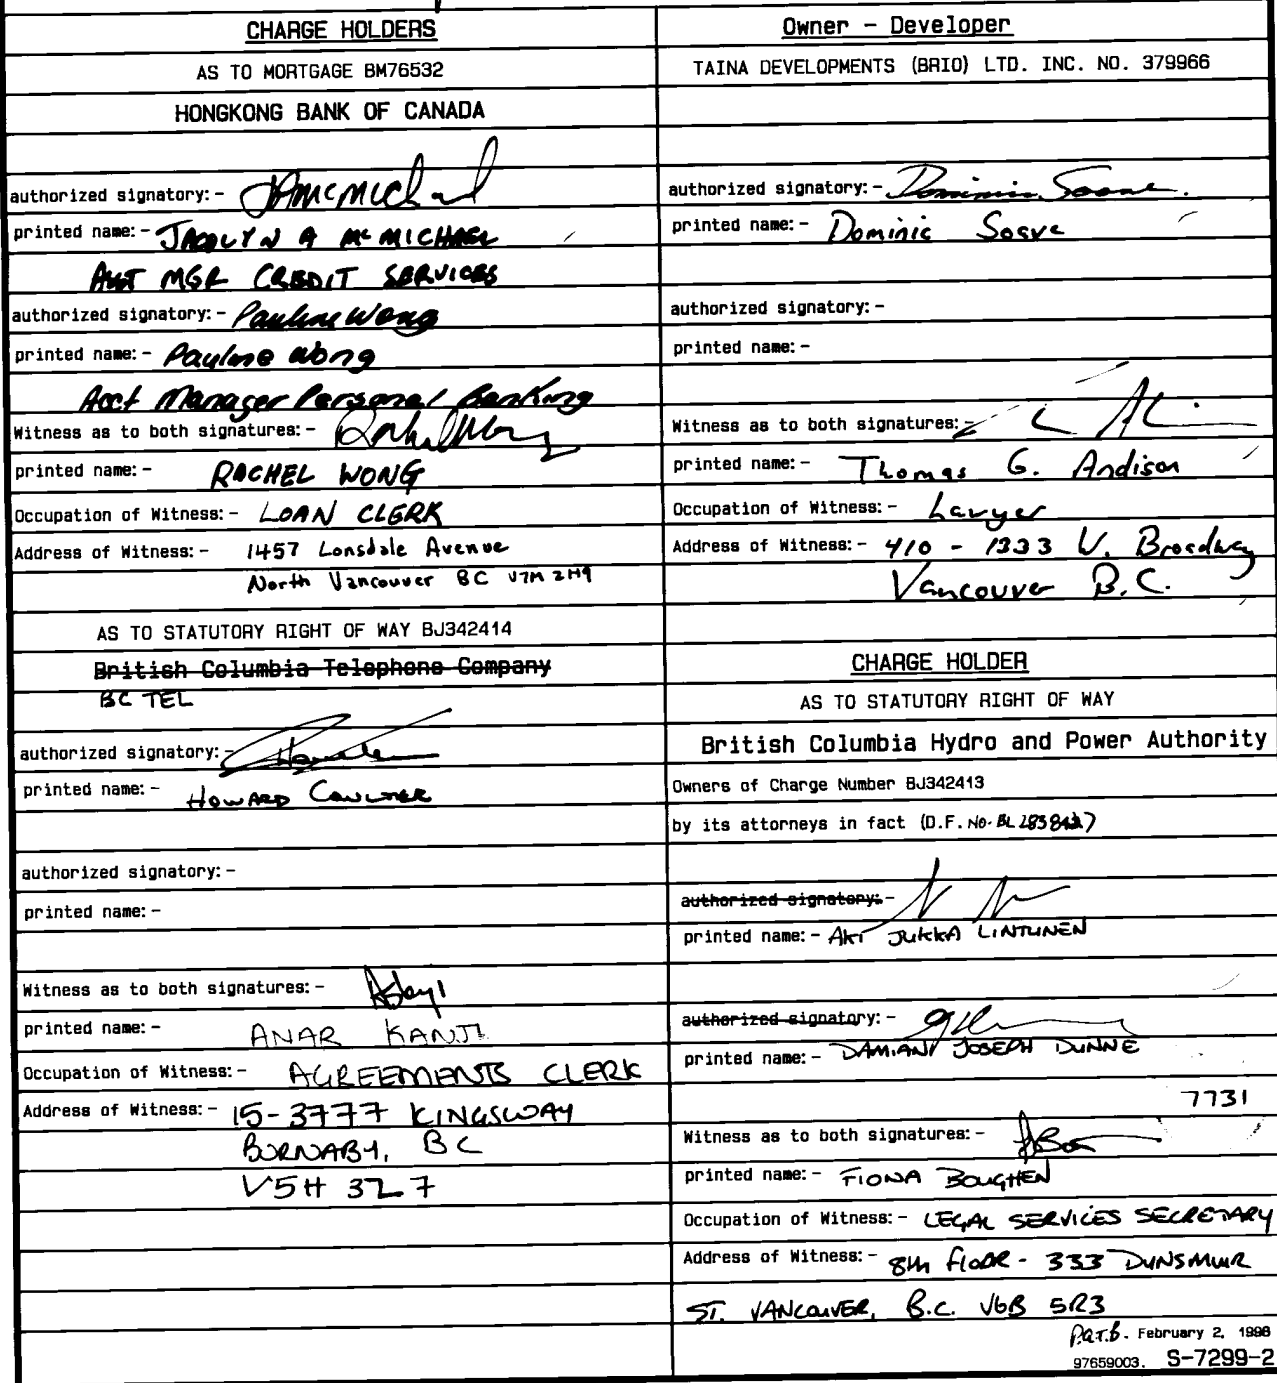 CHARGE HOLDERS
AS TO MORTGAGE BM76532
HONGKONG BANK OF CANADA
authorized signatory:-
printed name:- JACQLYN A McMICHAEL
MGR CREDIT SERVICES
authorized signatory:- Pauline Wong
printed name:- Pauline Wong
Acct Manager Personal Banking
Witness as to both signatures:-
printed name:- RACHEL WONG
Occupation of Witness:- LOAN CLERK
Address of Witness:- 1457 Lonsdale Avenue
North Vancouver BC V7M 2H9
AS TO STATUTORY RIGHT OF WAY BJ342414
British Columbia Telephone Company
BC TEL
authorized signatory:-
printed name:- HOWARD
authorized signatory:-
printed name:-
Witness as to both signatures:-
printed name:- ANAR KANJI
Occupation of Witness:- AGREEMENTS CLERK
Address of Witness:- 15-3777 KINGSWAY
BURNABY, BC
V5H 3Z7
Owner - Developer
TAINA DEVELOPMENTS (BRIO) LTD. INC. NO. 379966
authorized signatory:-
printed name:- Dominic Soave
authorized signatory:-
printed name:-
Witness as to both signatures:-
printed name:- Thomas G. Andison
Occupation of Witness:- Lawyer
Address of Witness:- 410 - 1333 W. Broadway
Vancouver B.C.
CHARGE HOLDER
AS TO STATUTORY RIGHT OF WAY
British Columbia Hydro and Power Authority
Owners of Charge Number BJ342413
by its attorneys in fact (D.F. No.
authorized signatory:-
printed name:- AKI JUKKA LINTUNEN
authorized signatory:-
printed name:- DAMIAN JOSEPH DUNNE
7731
Witness as to both signatures:-
printed name:- FIONA BOUGHEN
Occupation of Witness:- LEGAL SERVICES SECRETARY
Address of Witness:- 8th FLOOR - 333 DUNSMUIR
ST. VANCOUVER, B.C. V6B 5R3
February 2, 1998
97659003. S-7299-2